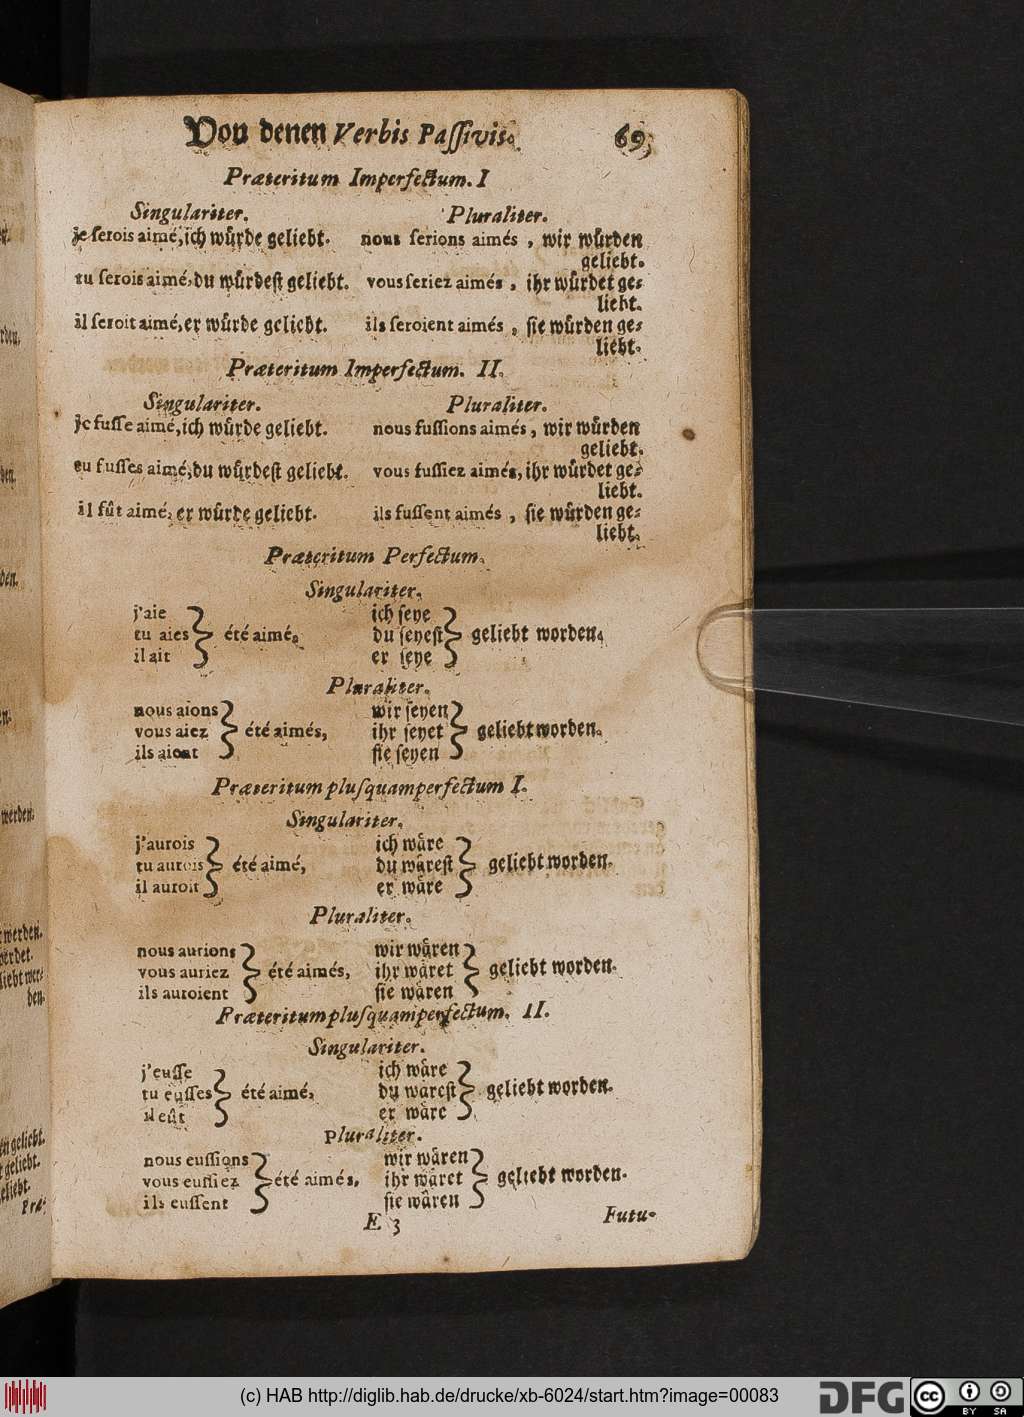 Von denen Verbis Passivis. 69
Præteritum Imperfectum. I
Singulariter. Pluraliter.
je serois aimé, ich würde geliebt. nous serions aimés, wir würden
geliebt.
tu serois aimé, du würdest geliebt. vous seriez aimés, ihr würdet ge-
liebt.
il seroit aimé, er würde geliebt. ils seroient aimés, sie würden ge-
liebt.
Præteritum Imperfectum. II.
Singulariter. Pluraliter.
je fusse aimé, ich würde geliebt. nous fussions aimés, wir würden
geliebt.
tu fusses aimé, du würdest geliebt. vous fussiez aimés, ihr würdet ge-
liebt.
il fût aimé, er würde geliebt. ils fussent aimés, sie würden ge-
liebt.
Præteritum Perfectum.
Singulariter.
j'aie ich seye
tu aies été aimé, du seyest geliebt worden.
il ait er seye
Pluraliter.
nous aions wir seyen
vous aiez été aimés, ihr seyet geliebt worden.
ils aient sie seyen
Præteritum plusquamperfectum I.
Singulariter.
j'aurois ich wäre
tu aurois été aimé, du wärest geliebt worden.
il auroit er wäre
Pluraliter.
nous aurions wir wären
vous auriez été aimés, ihr wäret geliebt worden.
ils auroient sie wären
Præteritum plusquamperfectum. II.
Singulariter.
j'eusse ich wäre
tu eusses été aimé, du wärest geliebt worden.
il eût er wäre
Pluraliter.
nous eussions wir wären
vous eussiez été aimés, ihr wäret geliebt worden.
ils eussent sie wären
E 3 Futu-
(c) HAB http://diglib.hab.de/drucke/xb-6024/start.htm?image=00083
DFG
CC BY SA